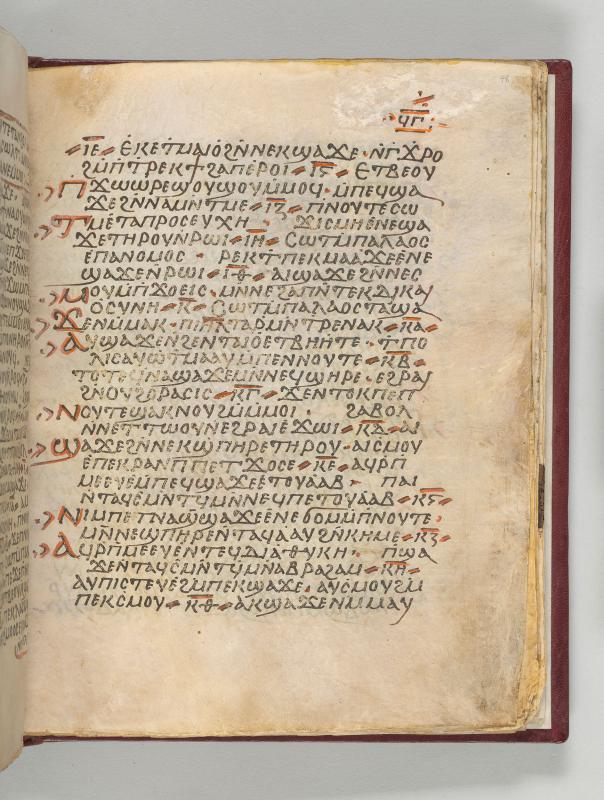 ϥⲅ
ⲓⲉ ⲉⲕⲉⲧⲙⲁⲓⲟ ϩⲛⲛⲉⲕϣⲁϫⲉ · ⲛⲅϫⲣⲟ
ϩⲙⲡⲧⲣⲉⲕϯϩⲁⲡ ⲉⲣⲟⲓ ⲓⲋ ⲉⲧⲃⲉⲟⲩ
ⲡϫⲱⲱⲣⲉ ϣⲟⲩϣⲟⲩ ⲙⲙⲟϥ · ⲙⲡⲉϥϣⲁ
ϫⲉ ϩⲛⲛⲁⲙⲛⲧⲙⲉ ⲓⲍ ⲡⲛⲟⲩⲧⲉ ⲥⲱ
ⲧⲙ ⲉⲧⲁⲡⲣⲟⲥⲉⲩⲭⲏ ϫⲓⲥⲙⲏ ⲉⲛⲉϣⲁ
ϫⲉ ⲧⲏⲣⲟⲩ ⲛⲣⲱⲓ ⲓⲏ ⲥⲱⲧⲙ ⲡⲁⲗⲁⲟⲥ
ⲉⲡⲁⲛⲟⲙⲟⲥ · ⲣⲉⲕⲧ ⲡⲉⲕⲙⲁⲁϫⲉ ⲉⲛⲉ
ϣⲁϫⲉ ⲛⲣⲱⲓ ⲓⲑ ⲁⲓϣⲁϫⲉ ϩⲛⲛⲉⲥ
ⲙⲟⲩ ⲙⲡϫⲟⲉⲓⲥ · ⲙⲛⲛⲉϩⲁⲡ ⲛⲧⲉⲕⲇⲓⲕⲁⲓ
ⲟⲥⲩⲛⲏ ⲕ ⲥⲱⲧⲙ ⲡⲁⲗⲁⲟⲥ ⲧⲁϣⲁ
ϫⲉ ⲛⲙⲙⲁⲕ · ⲡⲓⲏⲗ ⲧⲁⲣⲙⲛⲧⲣⲉ ⲛⲁⲕ ⲕⲁ
ⲁⲩϣⲁϫⲉ ϩⲉⲛϩⲉⲛⲧⲁⲓⲟ ⲉⲧⲃⲏⲏⲧⲉ · ⲧⲡⲟ
ⲗⲓⲥ ⲁⲩⲱ ⲧⲙⲁⲁⲩ ⲙⲡⲉⲛⲛⲟⲩⲧⲉ ⲕⲃ
ⲧⲟⲧⲉ ⲁⲕϣⲁϫⲉ ⲙⲛⲛⲉϥϣⲏⲣⲉ · ⲉϩⲣⲁⲓ
ϩⲛⲟⲩϩⲟⲣⲁⲥⲓⲥ ⲕⲅ ϫⲉⲛⲧⲟⲕ ⲡⲉ ⲡ
ⲛⲟⲩⲧⲉ ϣⲁⲕⲛⲟⲩϩⲙ ⲙⲙⲟⲓ · ϩⲁⲃⲟⲗ
ⲛⲛⲉⲧⲧⲱⲟⲩⲛ ⲉϩⲣⲁⲓ ⲉϫⲱⲓ ⲕⲇ ⲁⲓ
ϣⲁϫⲉ ϩⲛⲛⲉⲕϣⲡⲏⲣⲉ ⲧⲏⲣⲟⲩ · ⲁⲓⲥⲙⲟⲩ
ⲉⲡⲉⲕⲣⲁⲛ ⲡⲡⲉⲧϫⲟⲥⲉ ⲕⲉ ⲁϥⲣⲡ
ⲙⲉⲉⲩⲉ ⲙⲡⲉϥϣⲁϫⲉ ⲉⲧⲟⲩⲁⲁⲃ · ⲡⲁⲓ
ⲛⲧⲁϥⲥⲙⲛⲧϥ ⲙⲛⲛⲉϥⲡⲉⲧⲟⲩⲁⲁⲃ ⲕⲋ
ⲛⲓⲙ ⲡⲉⲧⲛⲁϣϣⲁϫⲉ ⲉⲛⲉϭⲟⲙ ⲙⲡⲛⲟⲩⲧⲉ ·
ⲙⲛⲛⲉϣⲡⲏⲣⲉ ⲛⲧⲁϥⲁⲁⲩ ϩⲛⲕⲏⲙⲉ ⲕⲍ
ⲁϥⲣⲡⲙⲉⲉⲩⲉ ⲛⲧⲉϥⲇⲓⲁⲑⲩⲕⲏ · ⲡϣⲁ
ϫⲉ ⲛⲧⲁϥⲥⲙⲛⲧϥ ⲙⲛⲁⲃⲣⲁϩⲁⲙ ⲕⲏ
ⲁⲩⲡⲓⲥⲧⲉⲩⲉ ϩⲙⲡⲉⲕϣⲁϫⲉ · ⲁⲩⲥⲙⲟⲩ ϩⲙ
ⲡⲉⲕⲥⲙⲟⲩ ⲕⲑ ⲁⲕϣⲁϫⲉ ⲛⲙⲙⲁⲩ